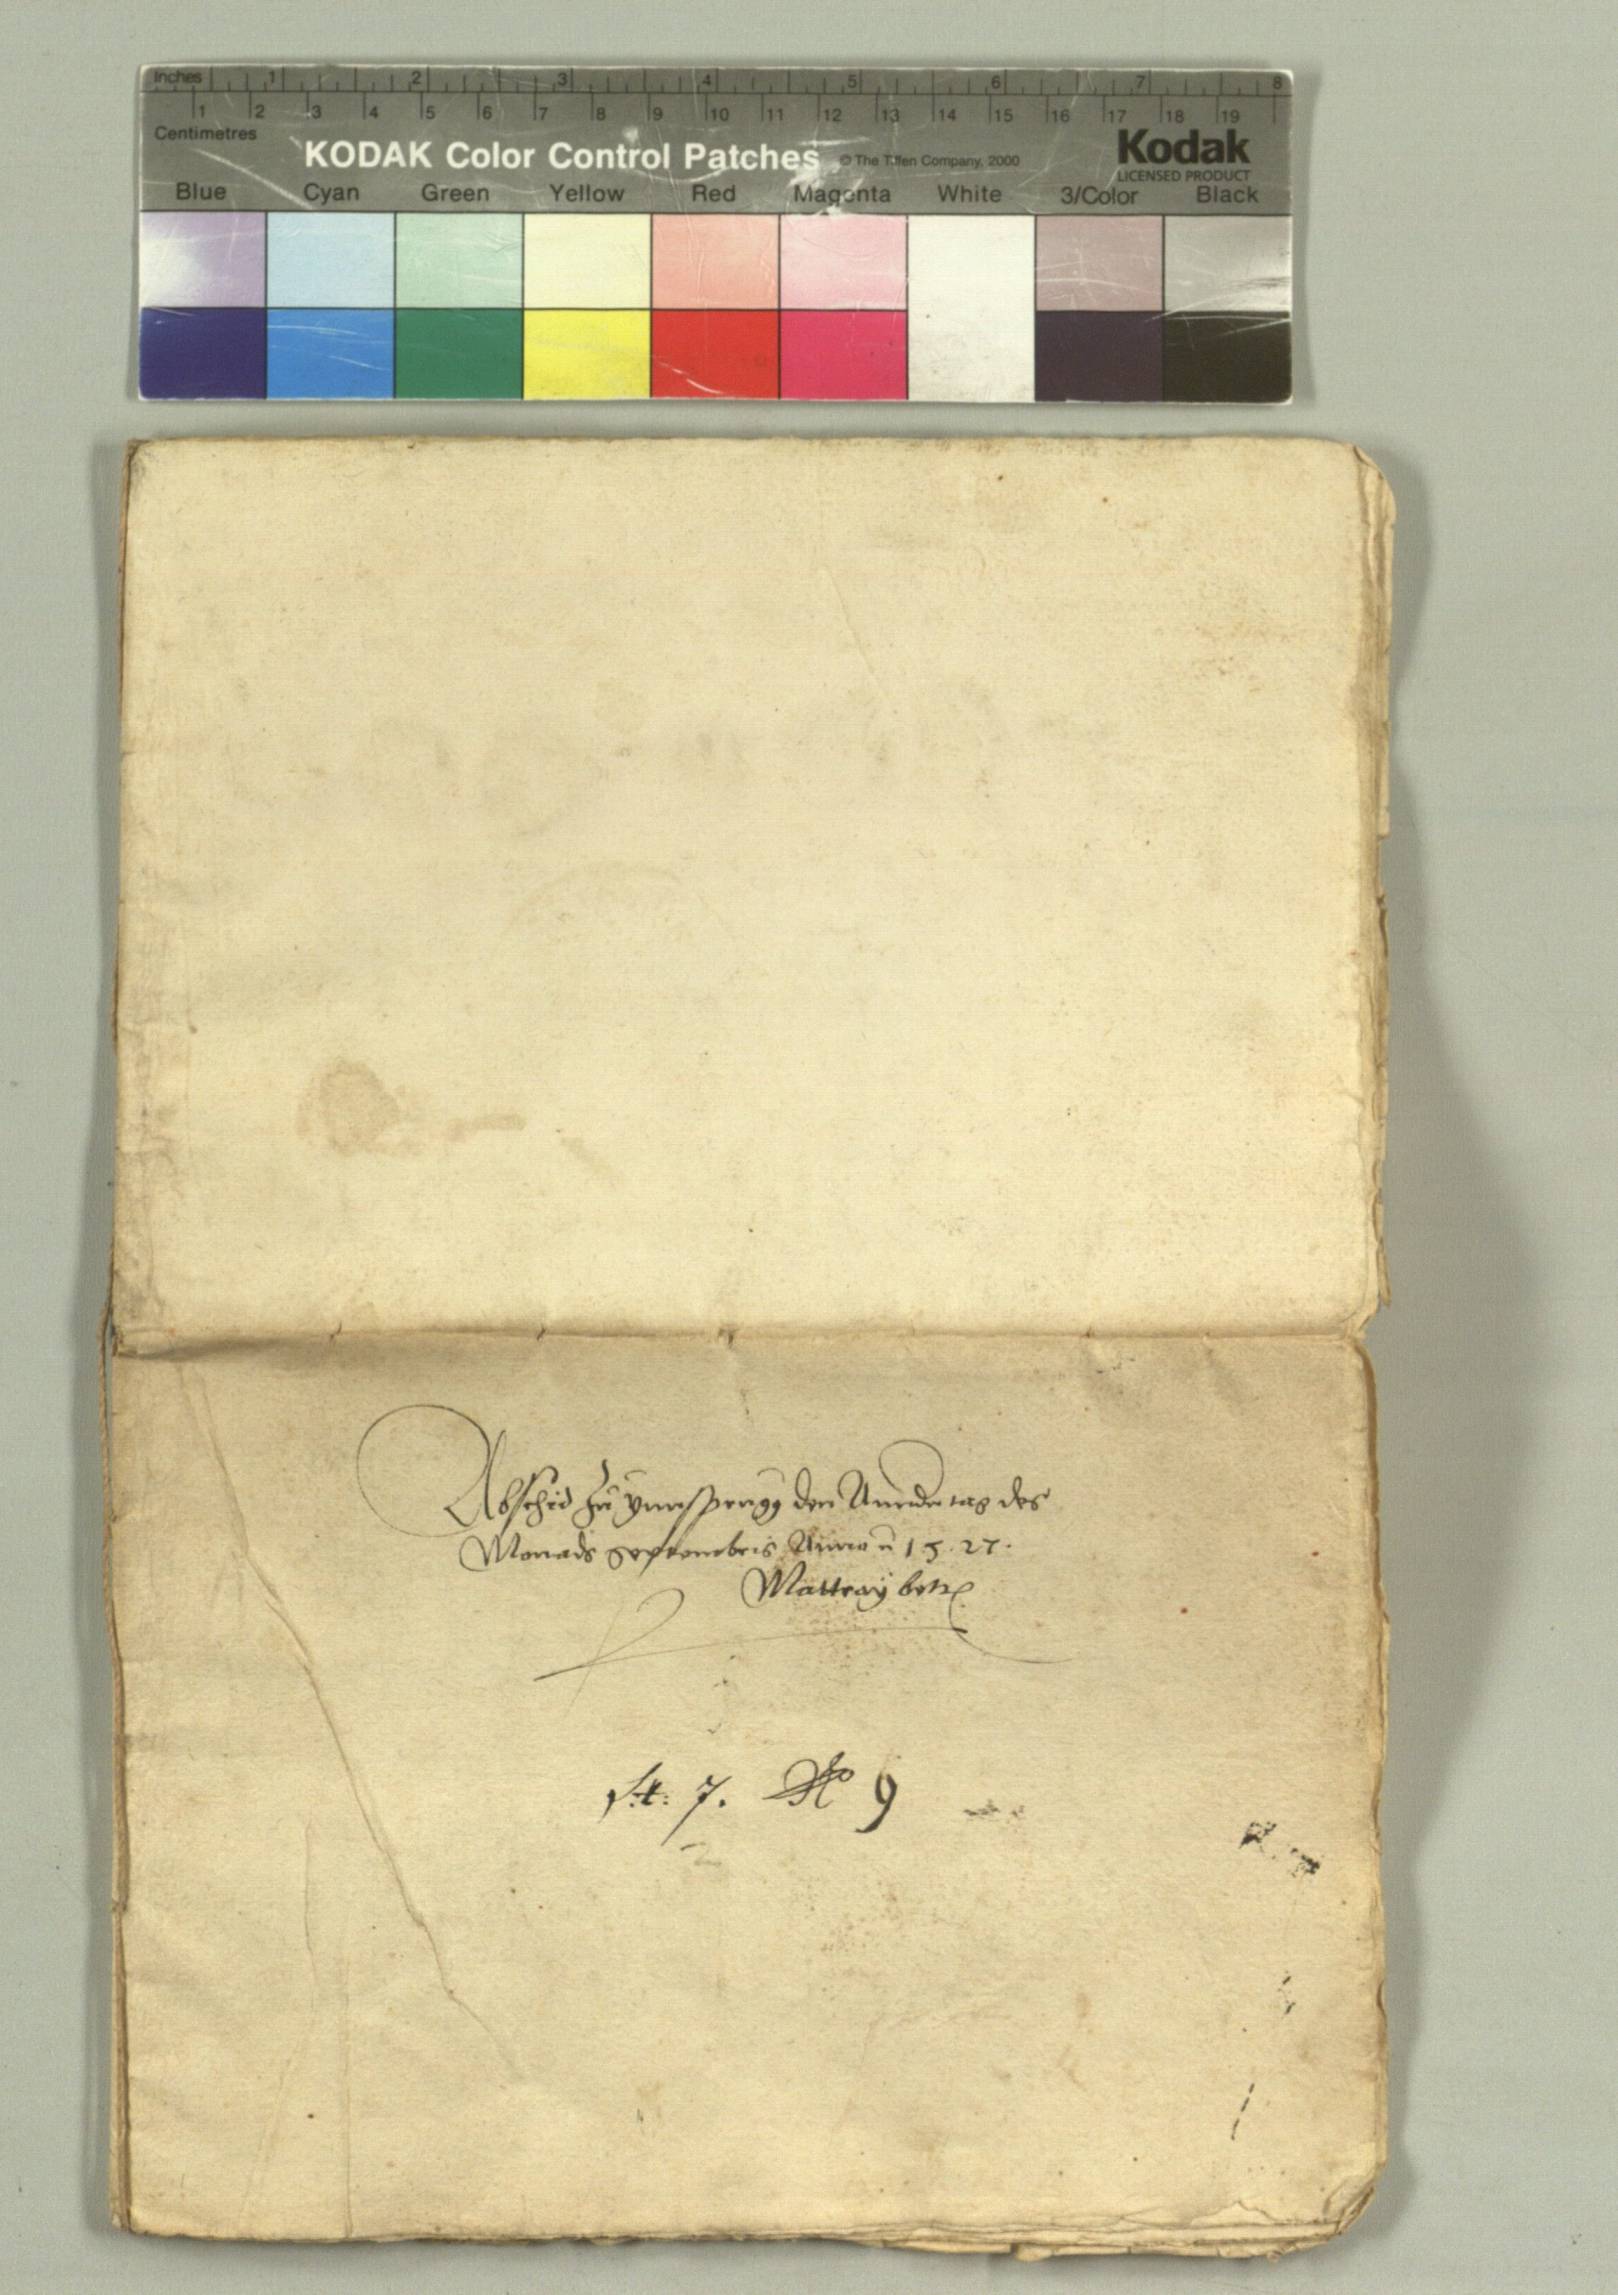 Inches 1 2 3 4 5 6 7 8
1 2 3 4 5 6 7 8 9 10 11 12 13 14 15 16 17 18 19
Centimetres
KODAK Color Control Patches © The Tiffen Company, 2000 Kodak
LICENSED PRODUCT
Blue Cyan Green Yellow Red Magenta White 3/Color Black
Abschid zu ynnsprugg den tag des
Monads Septembris Anno 15.27.
St: 7. No 9